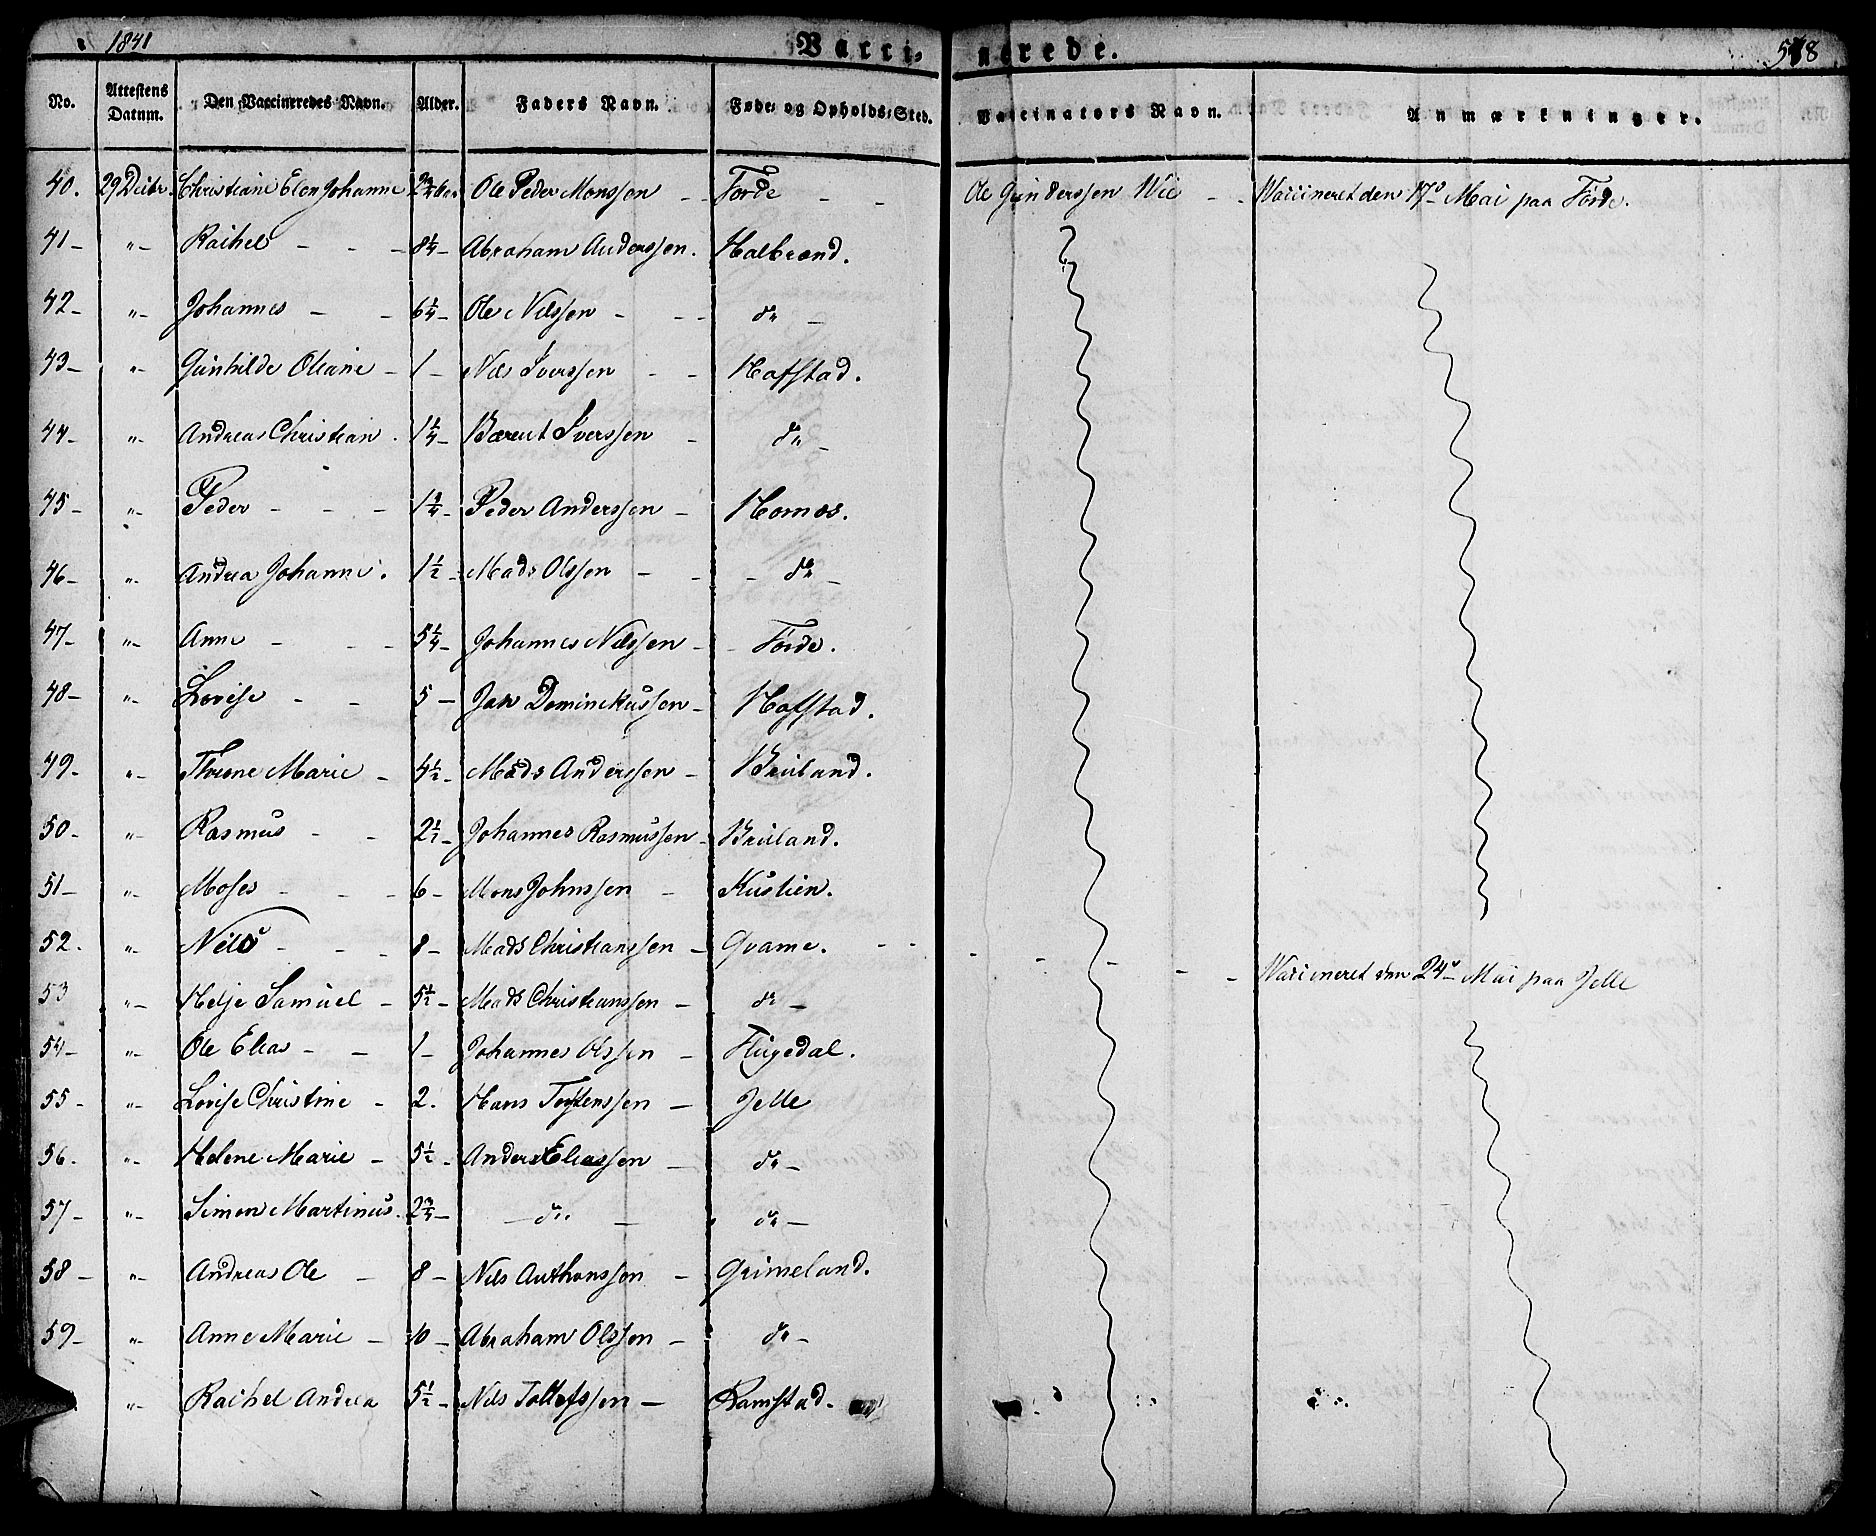 1841 Vacci- nerede. 578
No. Attestens Datum. Den Vaccineredes Navn. Alder. Faders Navn. Føde- og Opholds-Sted. Vaccinators Navn. Anmærkninger.
40. 29 Decbr. Christiane Elen Johanne Ole Peder Monssen - - Førde - - Ole Gunderssen Wie - - Vaccineret den 17de Mai paa Førde.
41- "- Rachel - - - 8 1/4 - Abraham Anderssen. Halbrend.
42- "- Johannes - - 6 1/4 - Ole Nilssen - - - do -
43- "- Gunhilde Oleane - 1 - Nils Iverssen - - Hafstad.
44- "- Andreas Christian . 1 1/4 - Bærent Iverssen - do -
45- "- Peder - - - 1 3/4 - Peder Anderssen - Hornæs.
46- "- Andrea Johanne. 1 1/2 - Mads Olssen - - - do -
47- "- Anne - - - 5 1/4 - Johannes Nilssen - - Førde.
48- "- Lovise - - 5 - Jan Dominekussen - Hafstad.
49- "- Throne Marie - 4 1/2 - Mads Anderssen - Bruland.
50- "- Rasmus - - 2 1/2 - Johannes Rasmussen - Bruland.
51- "- Moses - - - 6 - Mons Johnssen - Kuslien.
52. "- Nils - - - 8 - Mads Christianssen - Qvame. - - - - - - - Vaccineret den 24de Mai paa Jelle
53 "- Helje Samuel - 5 1/2 - Mads Christianssen - do -
54- "- Ole Elias - - 1 - Johannes Olssen - Flugedal.
55- "- Lovise Christine - 2. Hans Torstenssen - Jelle
56. "- Helene Marie - 5 1/2 - Anders Eliassen - do -
57- "- Simon Martinus. 2 3/4 - - do - do -
58- "- Andreas Ole - 8 - Nils Anthonssen - Grimeland.
59- "- Anne Marie - 10 - Abraham Olssen - do -
"- Rachel Andrea 5 1/2 - Nils Tollefssen - Ramstad.